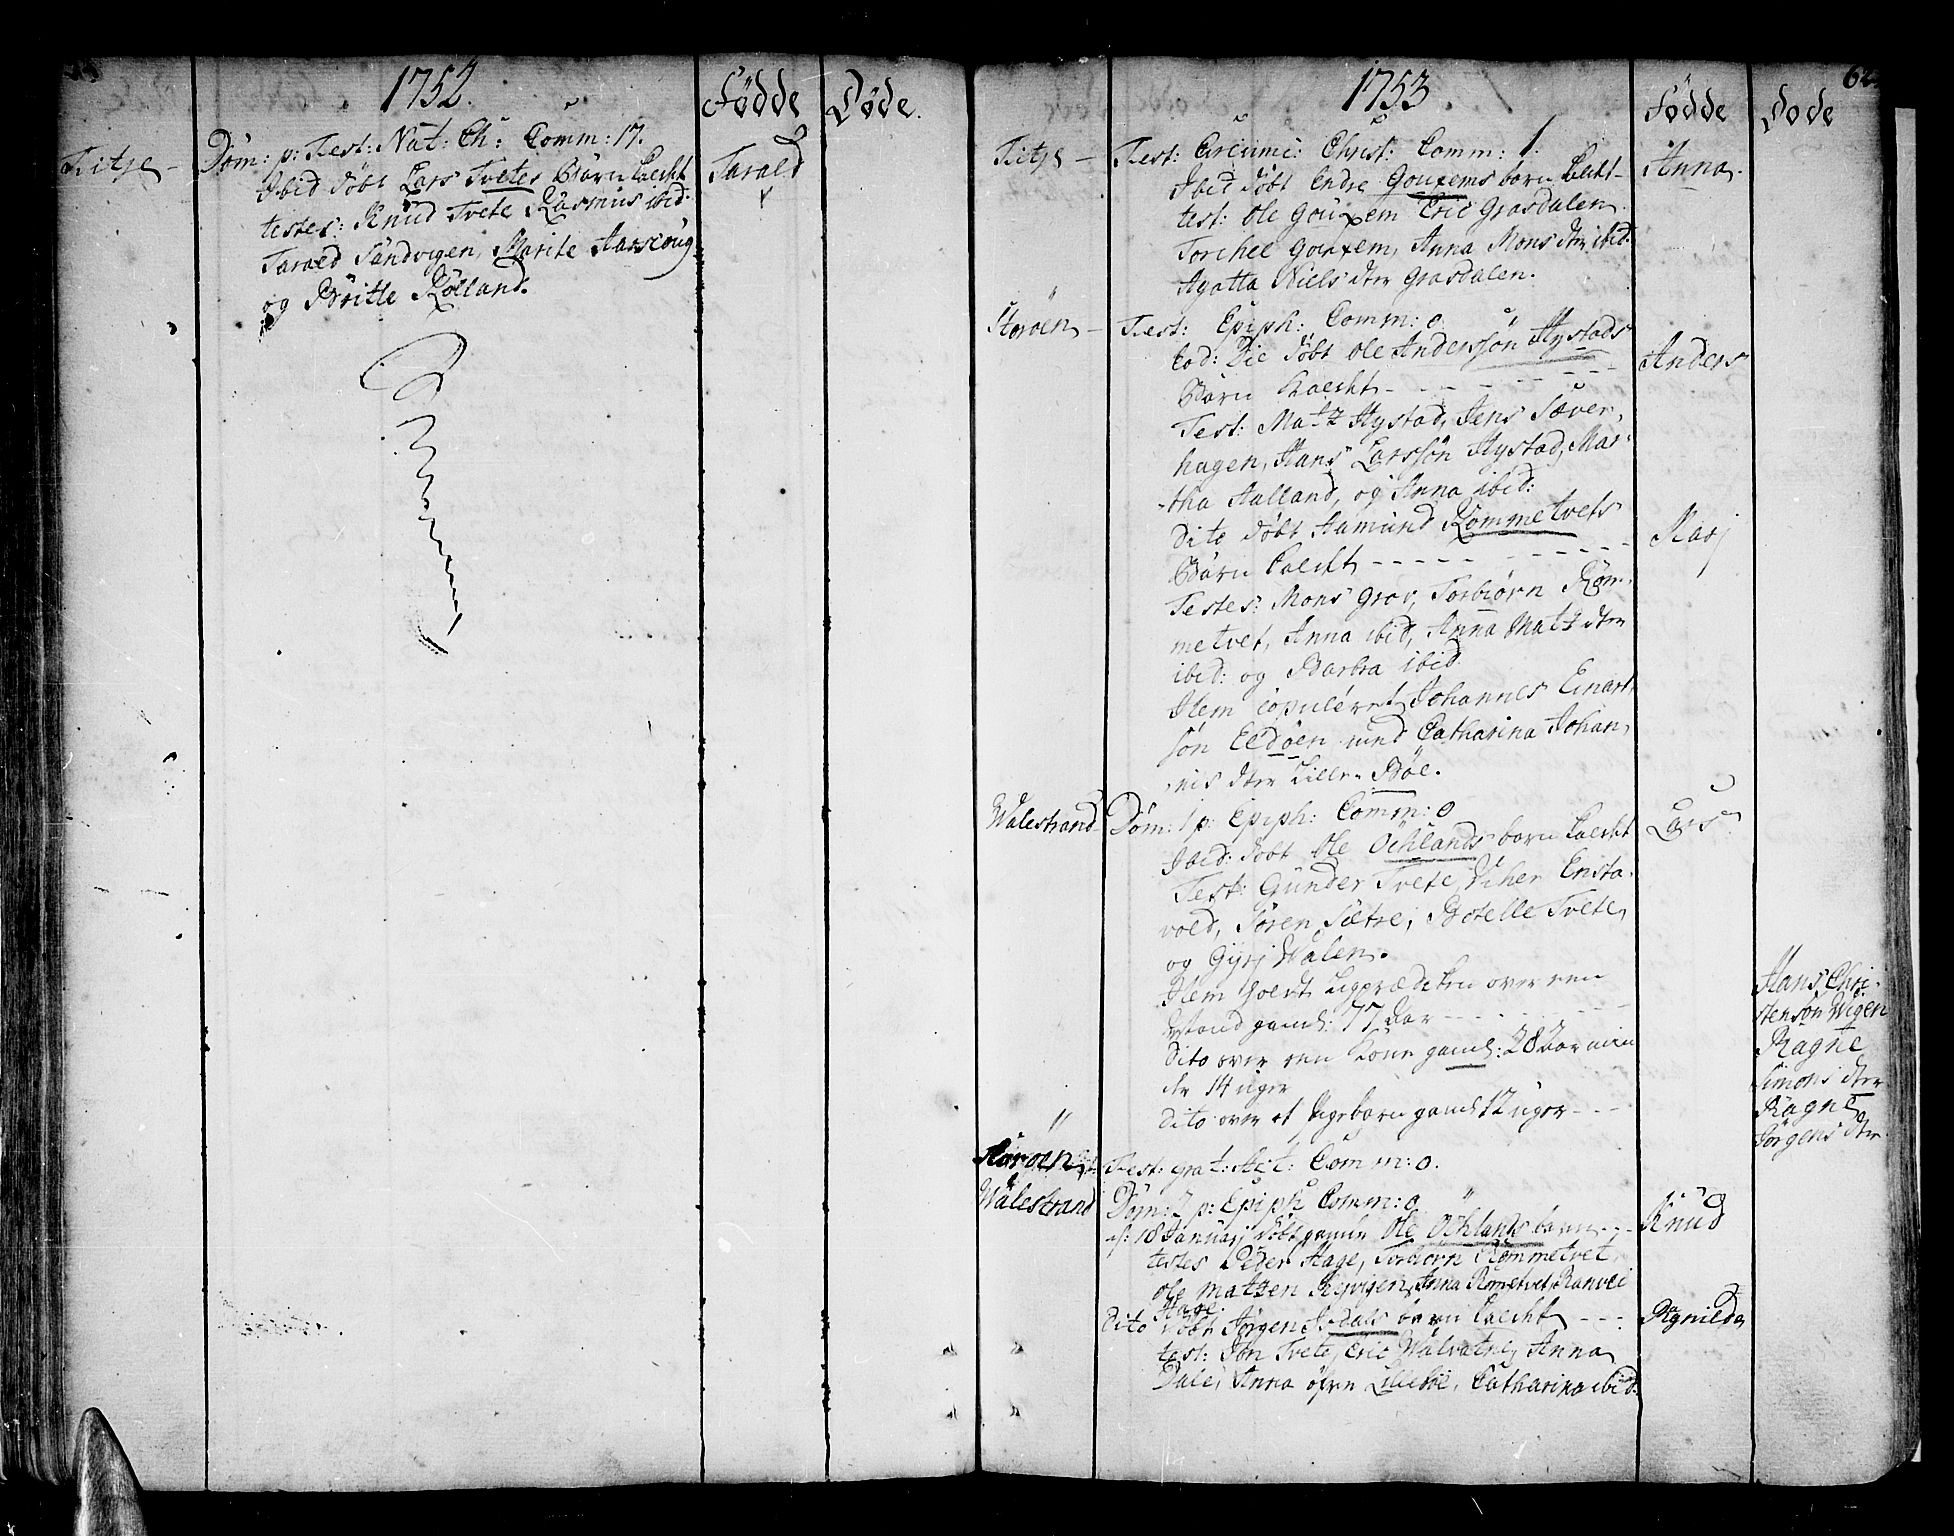 1752.
Födde
Döde.
Fitje - Dom: p: Fest: Nat: Ch: Comm: 17.
Ibid döbt Lars Tvetes Barn kaldt
Tarald
testes: Knud Tvete Rasmus ibid:
Tarald Sandvigen, Marite Aarscoug
og Britte Rölland.
62.
1753
Födde
Döde
Fitje - Fest: Circumc: Christ: Comm: 1.
Ibid döbt Endre Gouxems barn kaldt -
Anna.
test: Ole Gouxem Eric Grasdalen.
Torchel Gouxem, Anna Mons dtr ibid.
Agatta Niels dtr Grasdalen.
Storöen - Fest: Epiph: Comm: 0
Eod: Die döbt Ole Andersön Hystads
Anders
Barn kaldt - - - - - - - -
Test: Matz Hystad, Jens Sæver-
hagen, Hans Larssön Hystad, Mar-
-tha Aalland, og Anna ibid:
Dito döbt Aamund Rommetvets
Kari
Barn kaldt - - - - - - - - - -
Testes: Mons Grov, Torbiörn Röm-
metvet, Anna ibid, Anna Matz dtr
ibid: og Barbra ibid.
Item copuleret Johannes Einart
sön Eldöen und Catharina Johan-
-nis dtr Lille-Böe.
Walestrand - Dom: 1 p: Epiph: Comm: 0
Ibid: döbt Ole Öchlands barn kaldt
Lars
Test: Gunder Tvete, Viher Ensta-
vold, Sören Sætre, Botelle Tvete,
og Gyri Walen.
Item holdt Ligprædiken over een
Hans Chri-
Mand gaml: 77 aar - - - - -
stensön Wigen
Dito over een Kone gaml: 28 aar min
Ragne
dr 14 uger
Simons dtr
Dito over et Pigebarn gaml 12 uger - - -
Ragne
Jörgens dtr
Störöen Fest: grat: Act: Comm: 0.
Walestrand Dom: 2 p: Epiph Comm: 0
d: 18 Januarj döbt Ole Öchlands barn - - -
Knud
testes Peder Hage, Torbiorn Römmetvet,
Ole Matzen Anna Römetvet, Ranvei
Hage.
Dito döbt Jörgen Dals barn kaldt - - -
Ragnilde
test: Jon Tvete, Eric Walvatne, Anna
Dale, Anna Öfre Lilleböe, Catharina ibid: